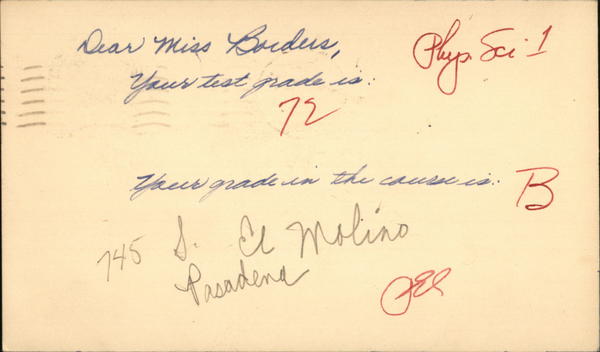 Dear Miss Borders,
Phys. Sci 1
Your test grade is:
72
Your grade in the course is:
B
745 S. El Molino
Pasadena